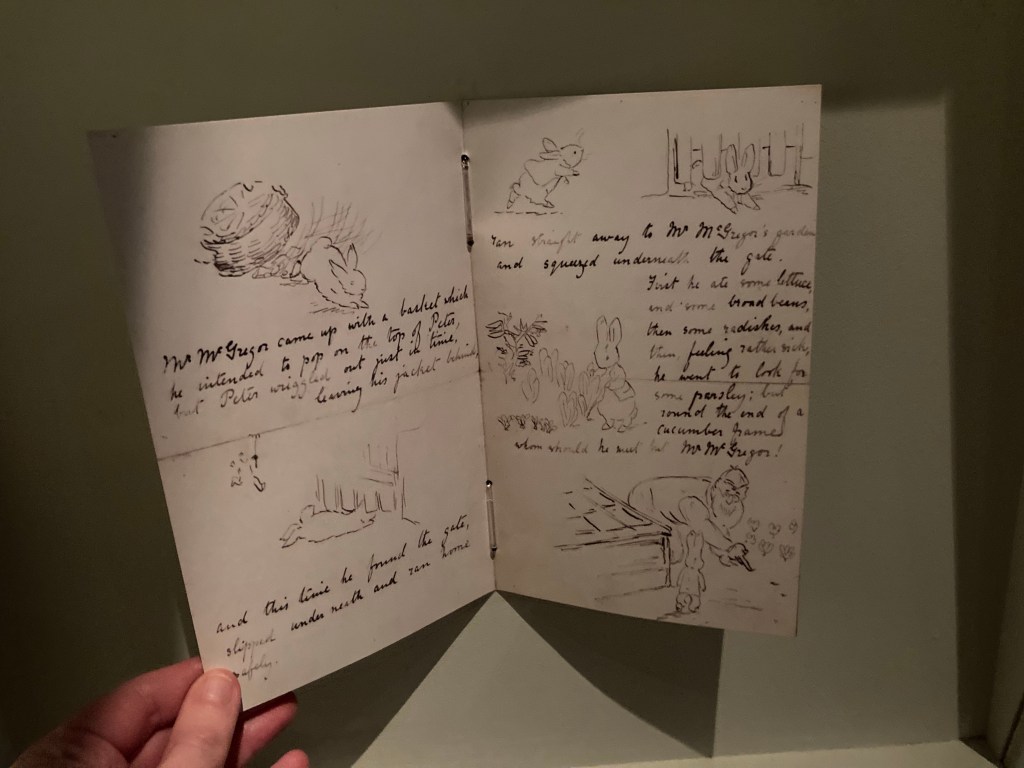 Mr McGregor came up with a basket which
he intended to pop on the top of Peter,
but Peter wriggled out just in time,
leaving his jacket behind,
and this time he found the gate,
slipped underneath and ran home
safely.
ran straight away to Mr McGregor's garden
and squeezed underneath the gate.
First he ate some lettuce,
and some broad beans,
then some radishes, and
then, feeling rather sick,
he went to look for
some parsley; but
round the end of a
cucumber frame
whom should he meet but Mr McGregor!